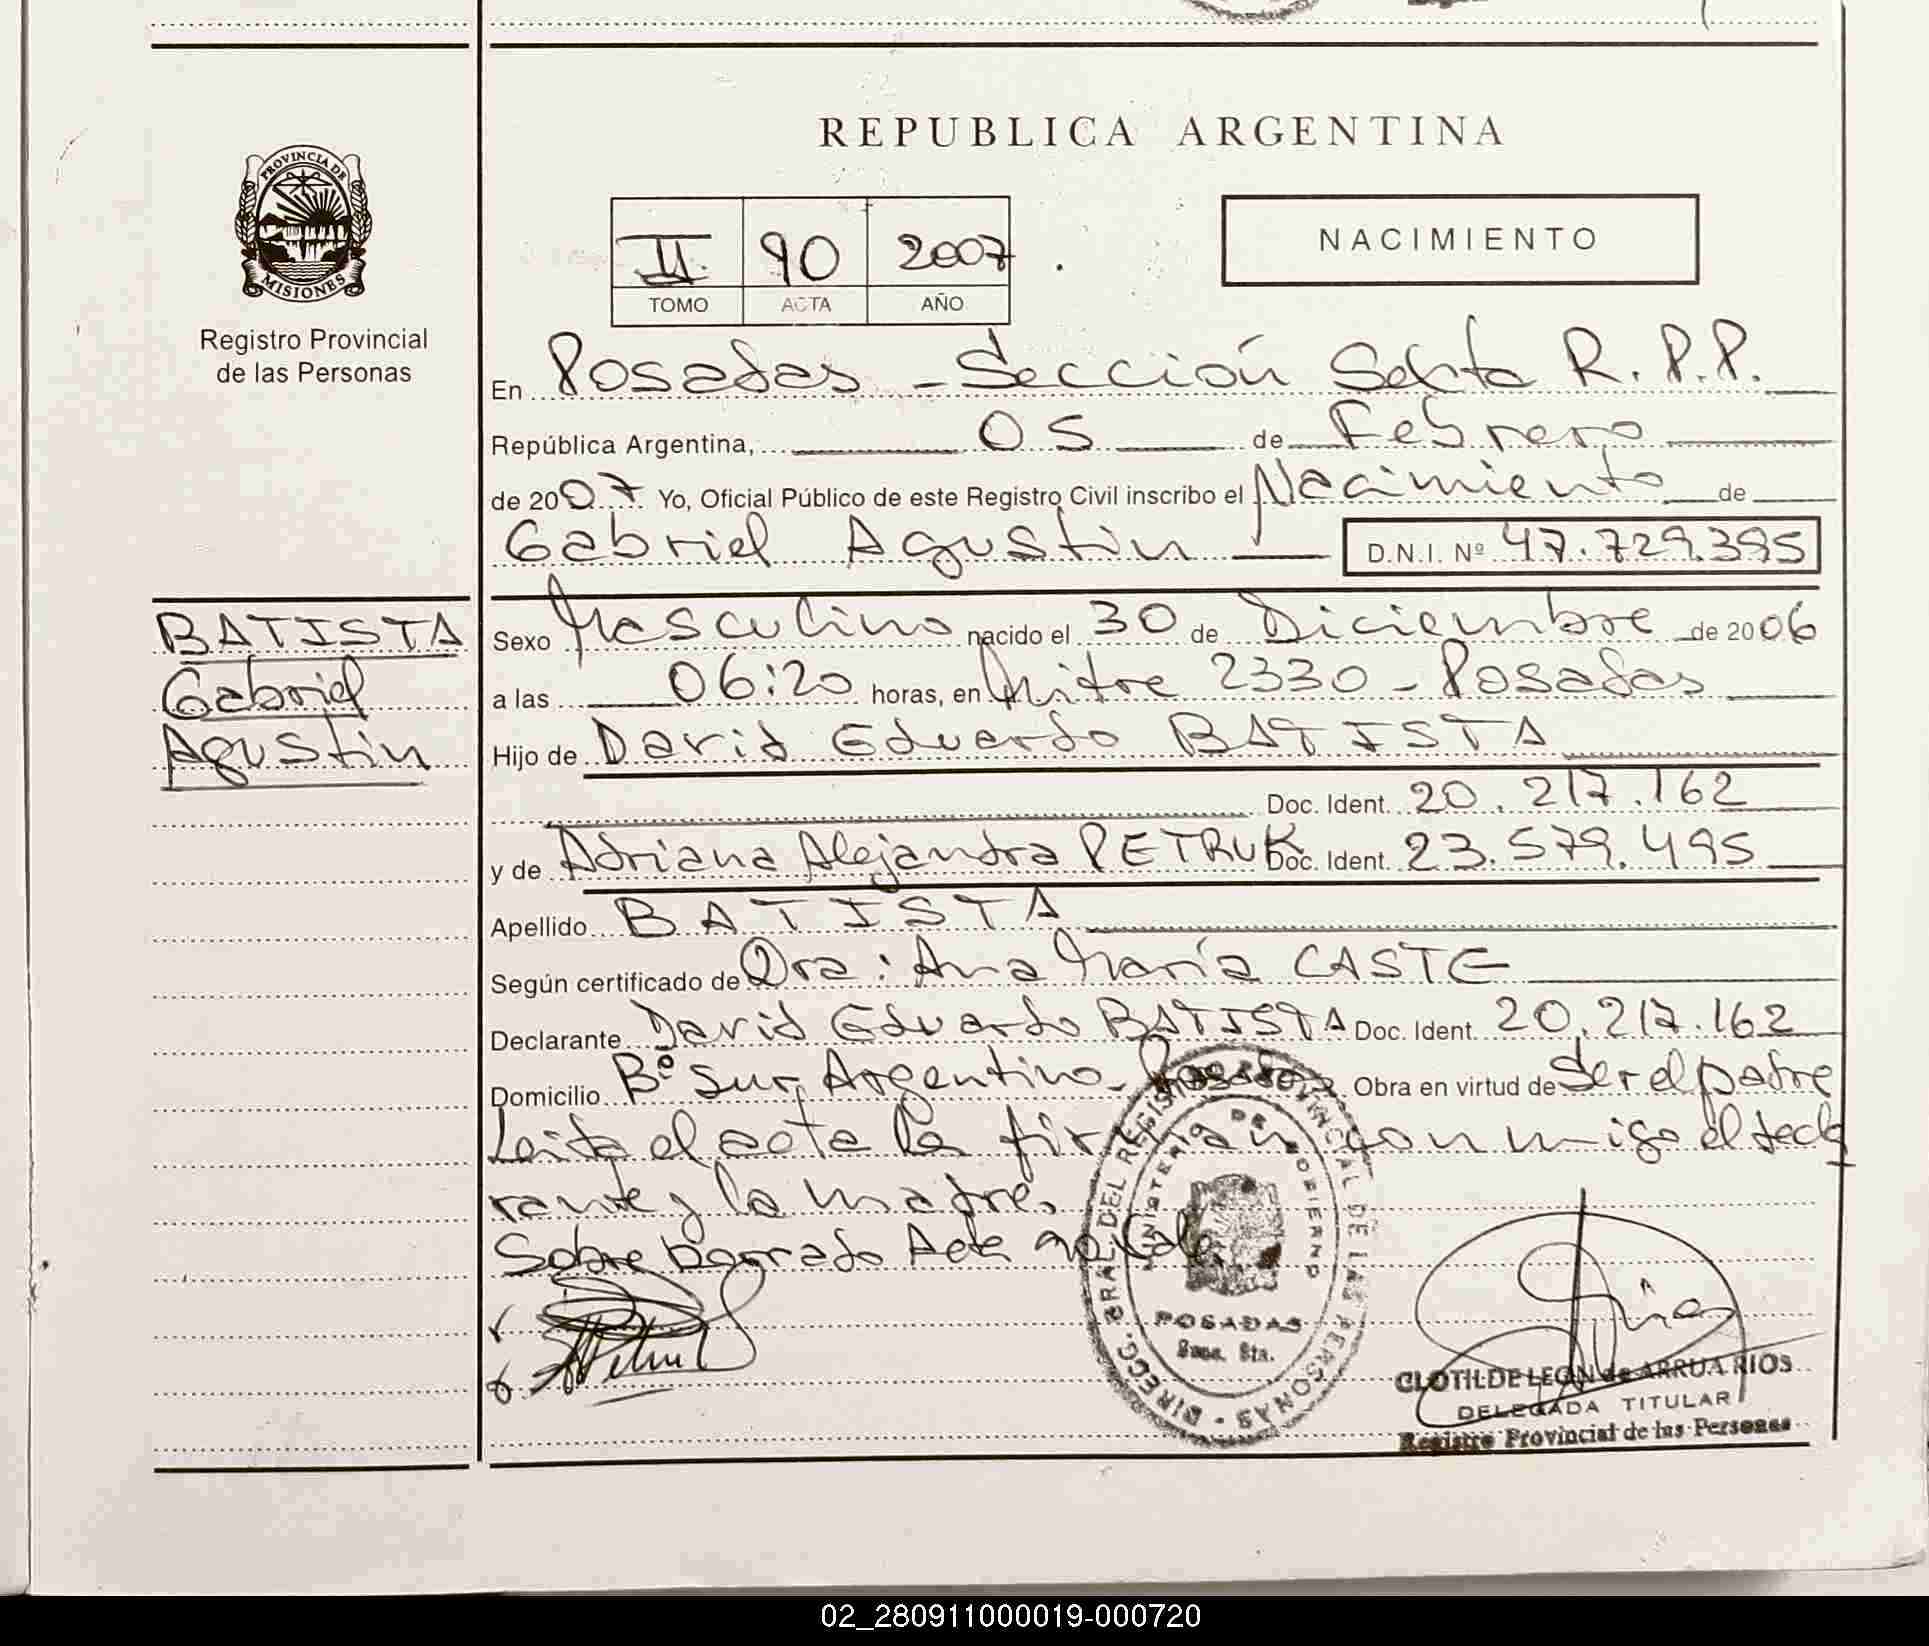 REPUBLICA ARGENTINA
PROVINCIA DE
MISIONES
Registro Provincial
de las Personas
II 90 2007
TOMO ACTA AÑO
NACIMIENTO
En Posadas - Sección Sexta R.P.P.
República Argentina, 05 de Febrero
de 2007 Yo, Oficial Público de este Registro Civil inscribo el Nacimiento de
Gabriel Agustin D.N.I. Nº 47.729.395
BATISTA
Gabriel
Agustin
Sexo Masculino nacido el 30 de Diciembre de 2006
a las 06:20 horas, en Mitre 2330 - Posadas
Hijo de David Eduardo BATISTA
Doc. Ident. 20.217.162
y de Adriana Alejandra PETRUK Doc. Ident. 23.579.495
Apellido BATISTA
Según certificado de Dra: Ana María CASTE
Declarante David Eduardo BATISTA Doc. Ident. 20.217.162
Domicilio Bº Sur Argentino - Posadas Obra en virtud de Ser el padre
Leida el acta la firman conmigo el decla
rante y la madre.
Sobre borrado Acta
DIRECC. GRAL. DEL REGISTRO PROVINCIAL DE LAS PERSONAS
MINISTERIO DE GOBIERNO
POSADAS
Secc. 6ta.
CLOTILDE LEON de ARRUA RIOS
DELEGADA TITULAR
Registro Provincial de las Personas
02_280911000019-000720